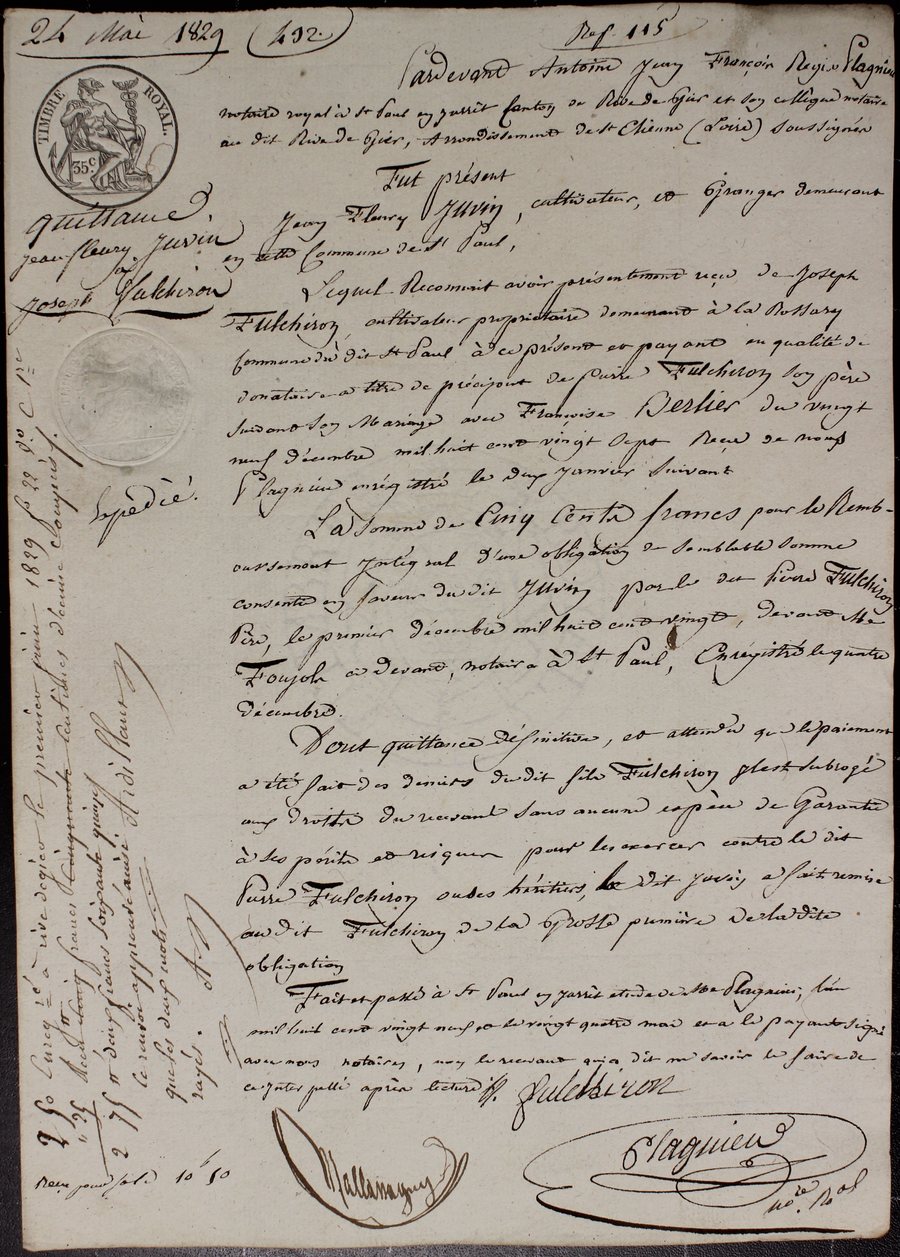 24 Mai 1829 (432) Rep. 115
TIMBRE ROYAL.
35 c.
Pardevant Antoine Jean François Regis Plagnieu
notaire royal à St Paul en jarrêt Canton de Rive de Gier et son collègue notaire
au dit Rive de Gier, Arrondissement de St Etienne (Loire) soussignés
Fut présent
Jean Fleury Juvin, cultivateur, et Granger demeurant
en cette Commune de St Paul,
Quittance
Jean fleury Juvin
à
Joseph Fulchiron
Lequel Reconnait avoir présentement reçu de Joseph
Fulchiron, cultivateur proprietaire demeurant à la Rossary
Commune du dit St Paul à ce présent et payant en qualité de
donataire a titre de préciput de pierre Fulchiron son père
suivant son Mariage avec Françoise Berlier du vingt
neuf décembre mil huit cent vingt sept Recu de nous
Plagnieu enrégistré le deux janvier suivant
Expédié.
La somme de Cinq Cents francs pour le Remb-
oursement Intégral d'une obligation de semblable somme
consentie en faveur du dit Juvin par le dit pierre Fulchiron
Père, le premier décembre mil huit cent vingt, devant Me
Foujols ci devant, notaire à St Paul, Enregistré le quatre
décembre.
Dont quittance définitive, et attendu que le paiement
a été fait des deniers du dit fils Fulchiron il est subrogé
aux droits du recevant sans aucune espèce de Garantie
à ses périls et risques pour les exercer contre le dit
Pierre Fulchiron ou ses héritiers, le dit juvin a fait remise
au dit Fulchiron de la Grosse premiere de la dite
obligation
Fait et passé à St Paul en jarrêt etude de Me Plagnieu, l'an
mil huit cent vingt neuf et le vingt quatre mai et a le payant signé
avec nous notaires, non le recevant qui a dit ne savoir le faire de
ce Inter pellé après lecture
fulchiron
Plagnieu
nore. Ral
2 50 Enreg ré à rive de gier le premier juin 1829 fo 22 Ro C 1re
" 25 Reçu cinquante centimes décime compris
2 75 deux francs soixante quinze
le renvoi approuvé ainsi
que les deux mots
rayés.
Reçu pour solde 10 f 50